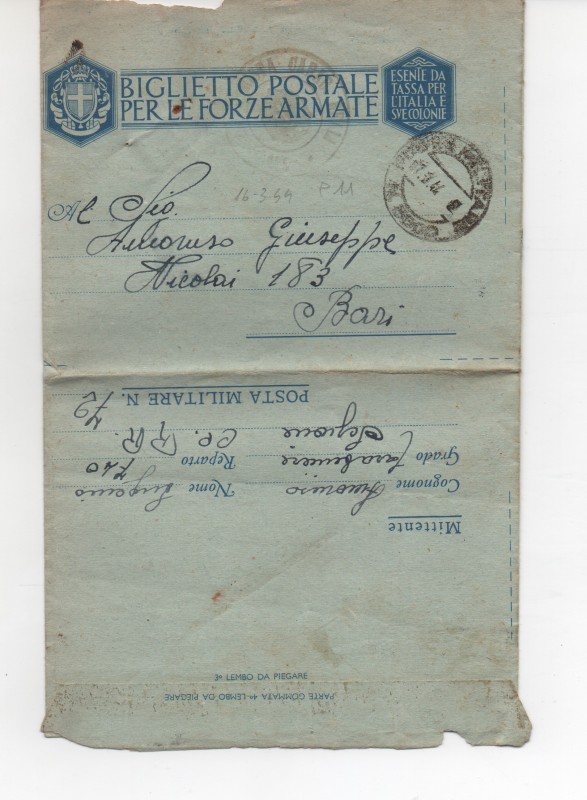 BIGLIETTO POSTALE
PER LE FORZE ARMATE
ESENTE DA
TASSA PER
L'ITALIA E
SVE COLONIE
16-3-44 P 11
Al Sig.
Amoruso Giuseppe
Nicolai 183
Bari
Mittente
Cognome Amoruso Nome Eugenio
Grado Carabiniere Reparto 720
Legione CC. RR.
POSTA MILITARE N. 72
3º LEMBO DA PIEGARE
PARTE GOMMATA 4º LEMBO DA PIEGARE